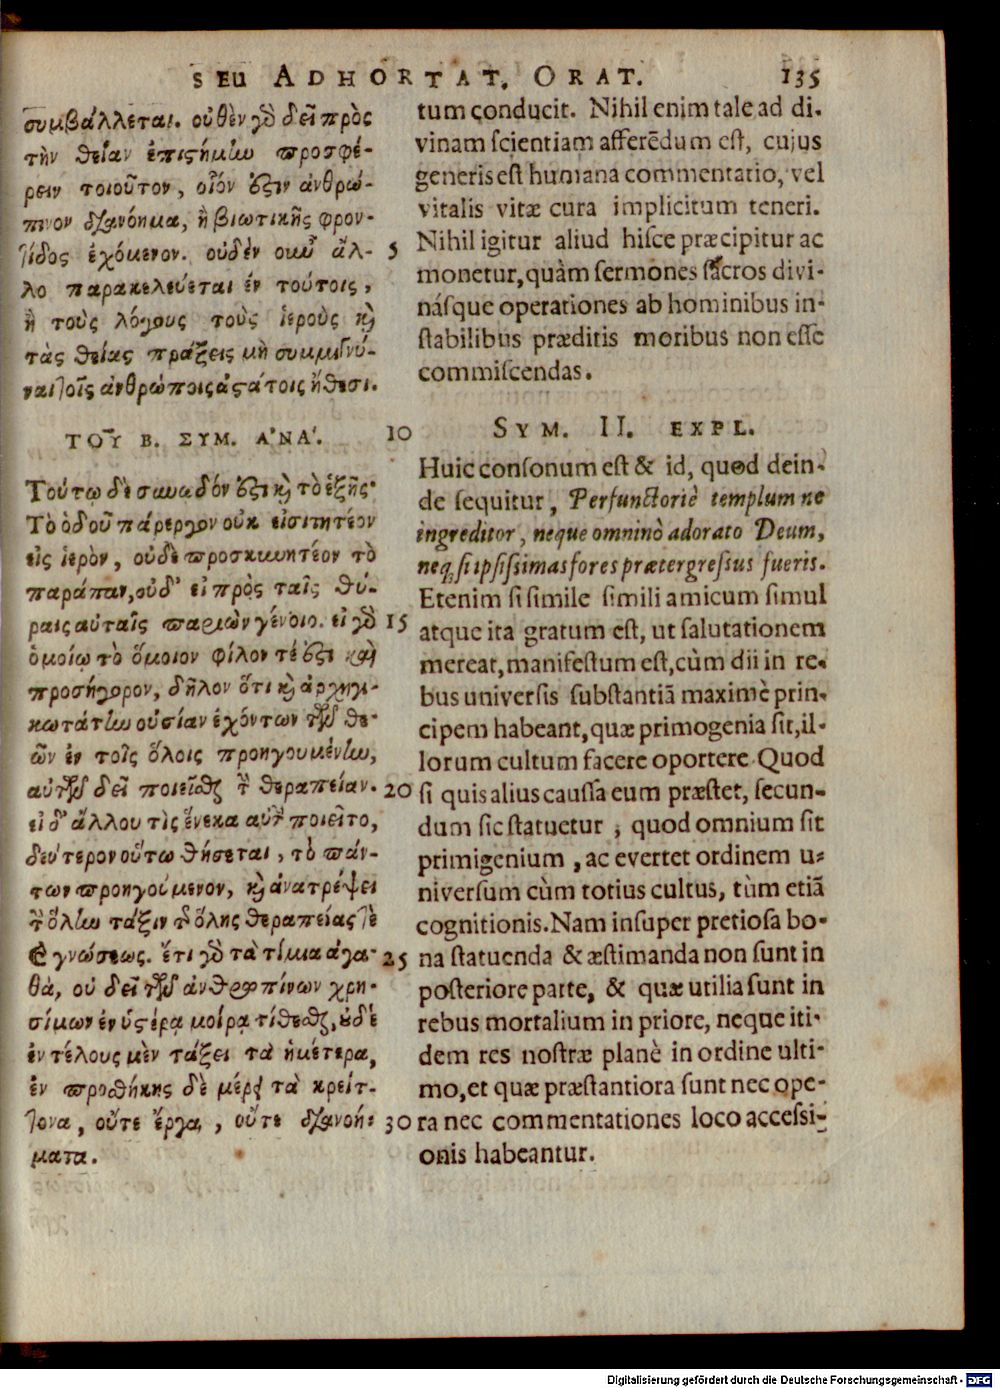 SEU ADHORTAT. ORAT. 135
συμβάλλεται. οὐθὲν γὸ δεῖ πρὸς
τὴν θείαν ἐπιστήμην προσφέ-
ρειν τοιοῦτον, οἷόν ἐστιν ἀνθρώ-
πινον διανόημα, ἢ βιωτικῆς φρον-
τίδος ἐχόμενον. οὐδέν οὖν ἄλ-
λο παρακελεύεται ἐν τούτοις,
ἢ τοὺς λόγους τοὺς ἱεροὺς καὶ
τὰς θείας πράξεις μὴ συμμιγνύ-
ναι τοῖς ἀνθρώποις ἀστάτοις ἤθεσι.
ΤΟΥ͂ Β. ΣΥΜ. Α᾿ΝΑ´.
Τούτῳ δὲ συναδόν ἐστι καὶ τὸ ἑξῆς·
Τὸ ὁδοῦ πάρεργον οὐκ εἰσιτητέον
εἰς ἱερὸν, οὐδὲ προσκυνητέον τὸ
παράπαν, οὐδ' εἰ πρὸς ταῖς θύ-
ραις αὐταῖς παριὼν γένοιο. εἰ γὸ
ὁμοίῳ τὸ ὅμοιον φίλον τέ ἐστι καὶ
προσήγορον, δῆλον ὅτι καὶ ἀρχηγι-
κωτάτην οὐσίαν ἐχόντων τῶν θε-
ῶν ἐν τοῖς ὅλοις προηγουμένην,
αὐτῶν δεῖ ποιεῖσθαι τὴν θεραπείαν.
εἰ δ' ἄλλου τὶς ἕνεκα αὐτὴν ποιεῖτο,
δεύτερον οὕτω θήσεται, τὸ πάν-
των προηγούμενον, καὶ ἀνατρέψει
τὴν ὅλην τάξιν τῆς ὅλης θεραπείας τε
καὶ γνώσεως. ἔτι γὸ τὰ τίμια ἀγα-
θὰ, οὐ δεῖ τῶν ἀνθρωπίνων χρη-
σίμων ἐν ὑστέρᾳ μοίρᾳ τίθεσθαι, οὐδὲ
ἐν τέλους μὲν τάξει τὰ ἡμέτερα,
ἐν προσθήκης δὲ μέρει τὰ κρείτ-
τονα, οὔτε ἔργα, οὔτε διανοή-
ματα.
5
10
15
20
25
30
tum conducit. Nihil enim tale ad di-
vinam scientiam afferēdum est, cujus
generis est humana commentatio, vel
vitalis vitæ cura implicitum teneri.
Nihil igitur aliud hisce præcipitur ac
monetur, quàm sermones sacros divi-
násque operationes ab hominibus in-
stabilibus præditis moribus non esse
commiscendas.
SYM. II. EXPL.
Huic consonum est & id, quod dein-
de sequitur, Perfunctoriè templum ne
ingreditor, neque omninò adorato Deum,
neq; si ipsissimas fores prætergressus fueris.
Etenim si simile simili amicum simul
atque ita gratum est, ut salutationem
mereat, manifestum est, cùm dii in re-
bus universis substantiā maximè prin-
cipem habeant, quæ primogenia sit, il-
lorum cultum facere oportere. Quod
si quis alius caussa eum præstet, secun-
dum sic statuetur, quod omnium sit
primigenium, ac evertet ordinem u-
niversum cùm totius cultus, tùm etiā
cognitionis. Nam insuper pretiosa bo-
na statuenda & æstimanda non sunt in
posteriore parte, & quæ utilia sunt in
rebus mortalium in priore, neque iti-
dem res nostræ planè in ordine ulti-
mo, et quæ præstantiora sunt nec ope-
ra nec commentationes loco accessi-
onis habeantur.
Digitalisierung gefördert durch die Deutsche Forschungsgemeinschaft - DFG